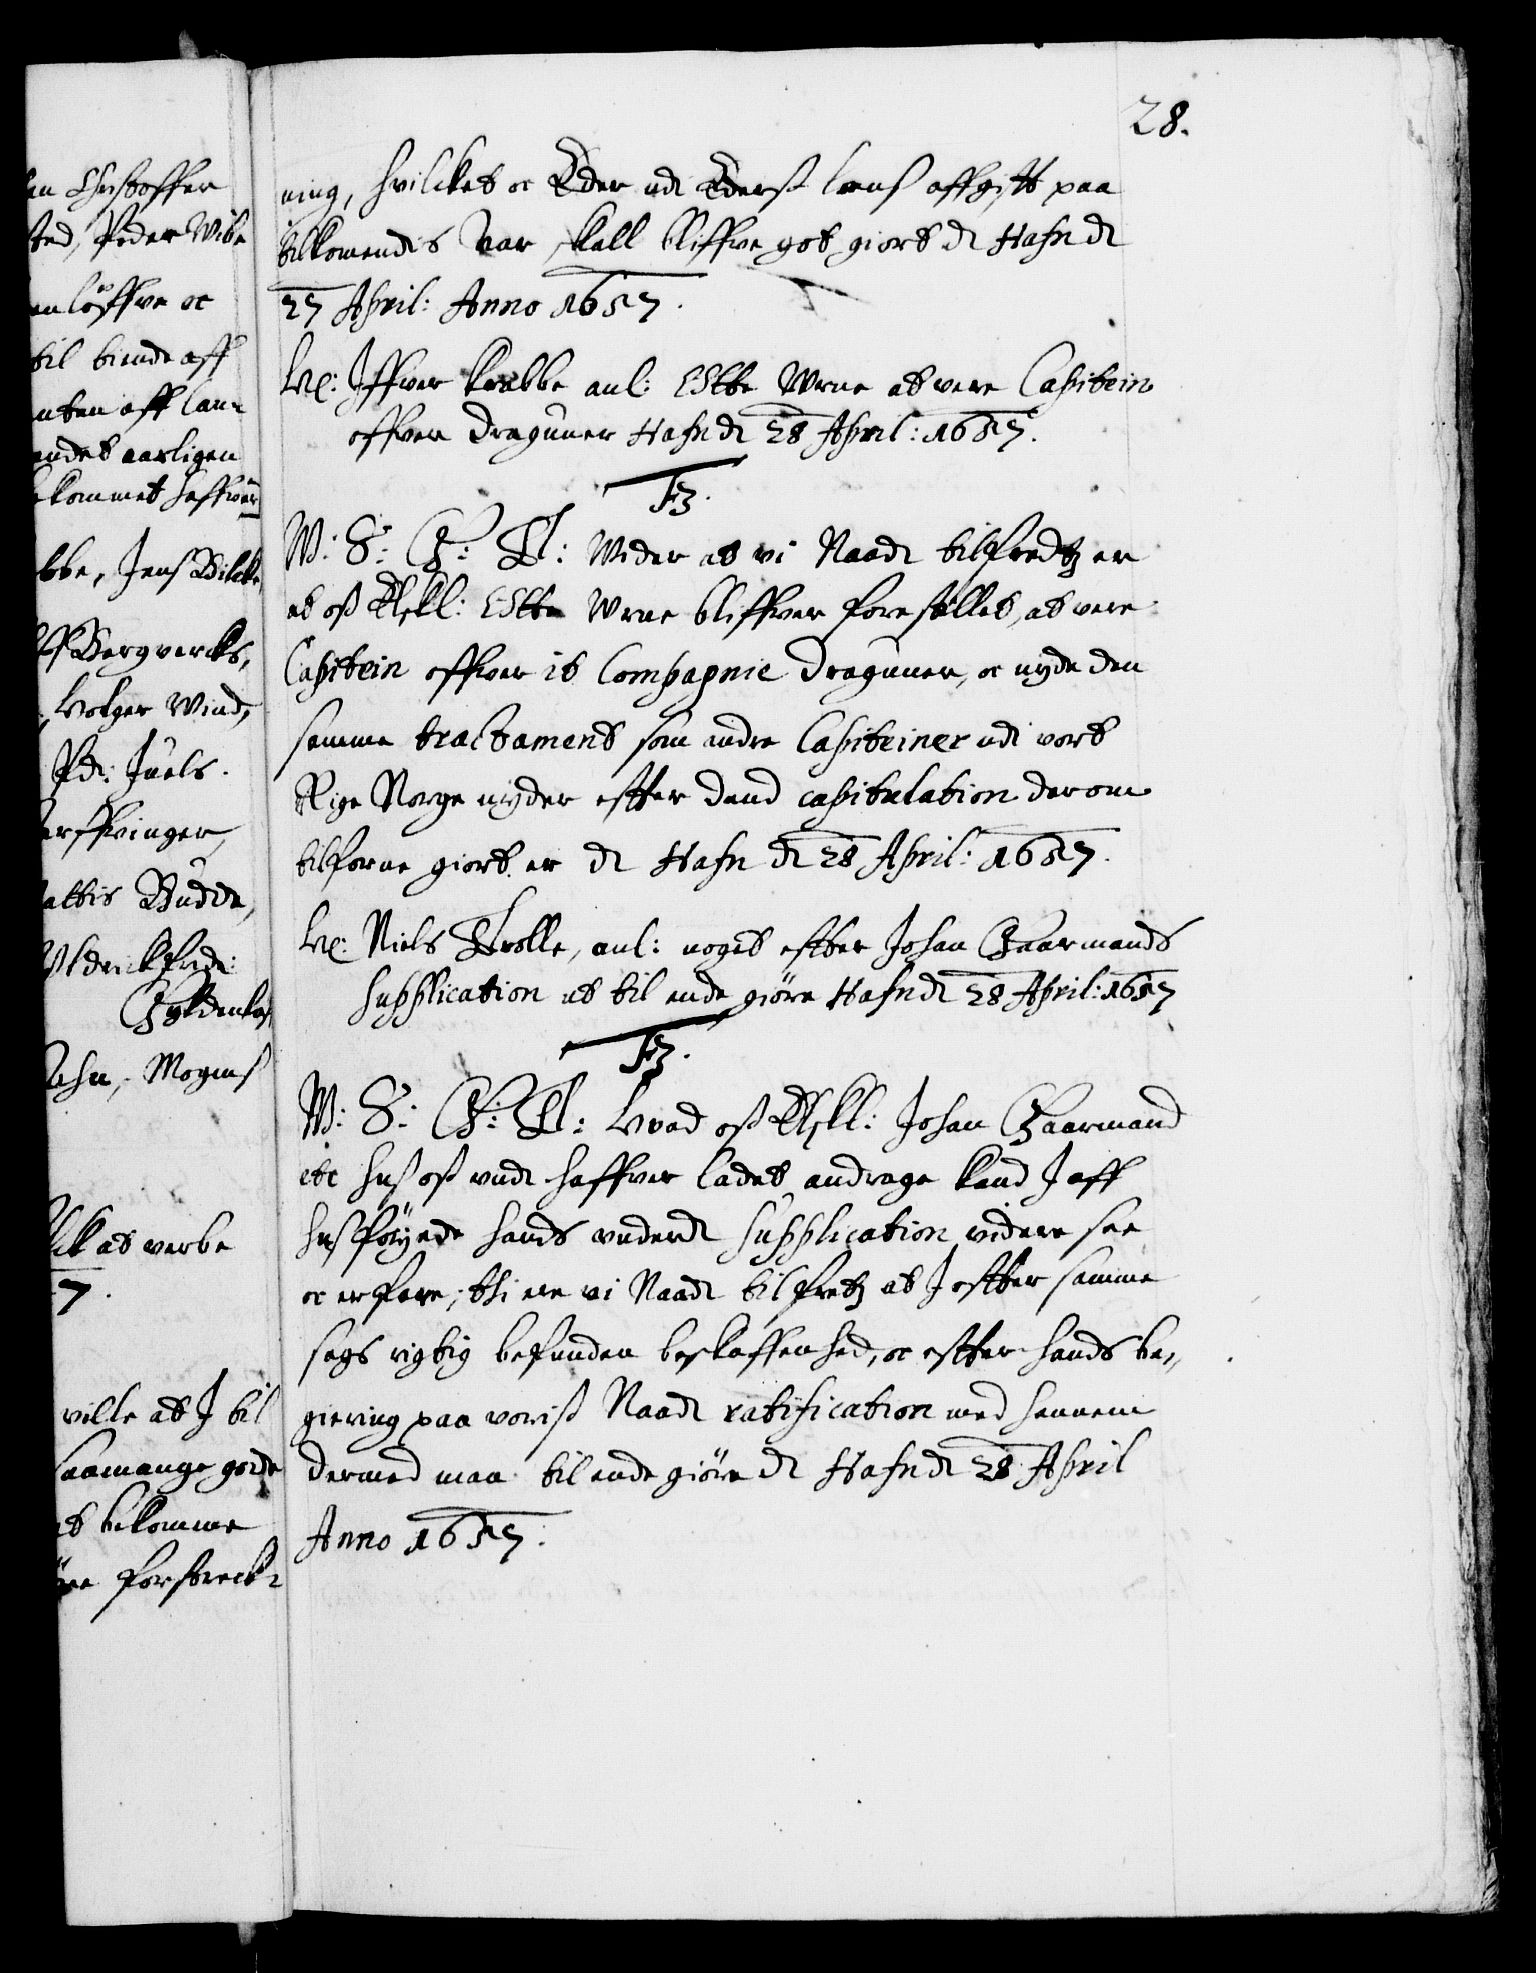 28.
ning, hvilcket oc Eder udi Ederß lens affgifft paa
tilkomendis Aar skall bliffve got giort dt Hafn dt
27 April: Anno 1657.
Iffver Krabbe anl: Ebbe Wrne at vere Capitein
offver Draguner Hafn dt 28 April: 1657.
F3.
W: S: G: T: Wider at vi Naadt tilfredtz er
at oß Elskl: Ebbe Wrne bliffver forestillet, at vere
Capitein offver it Compagnie Draguner, oc nyde den
samme tractament som andre Capiteiner udi vort
Rige Norge nyder effter dend capitulation derom
tilforne giort er dt Hafn dt 28 April: 1657.
Niels Trolle, anl: noget effter Johan Gaarmands
supplication at til ende giöre Hafn dt 28 April: 1657
F3.
W: S: G: T: Hvad oß Elskl: Johan Gaarmand
etc hos oß undt haffver ladet andrage kand I aff
hosföyede hands underdt supplication videre see
oc erfare, thi ere vi Naadt tilfretz at I effter samme
sags rigtig befunden beskaffenhed, oc effter hands be,,
giering paa voriß Naadt ratification med hannem
dermed maa til ende giöre dt Hafn dt 28 April
Anno 1657.
Christoffer
Peder Wibe
löffve oc
til biude aff
aff lan-
aarligen
bekommet haffver
Jens Bilcke
Bergvercks,
Holger Wind,
Pdr: Juels.
Budde,
Gyldenlöf
Mogens
at verbe
7.
ville at I til
saamange gode
bekomme
forstreck-